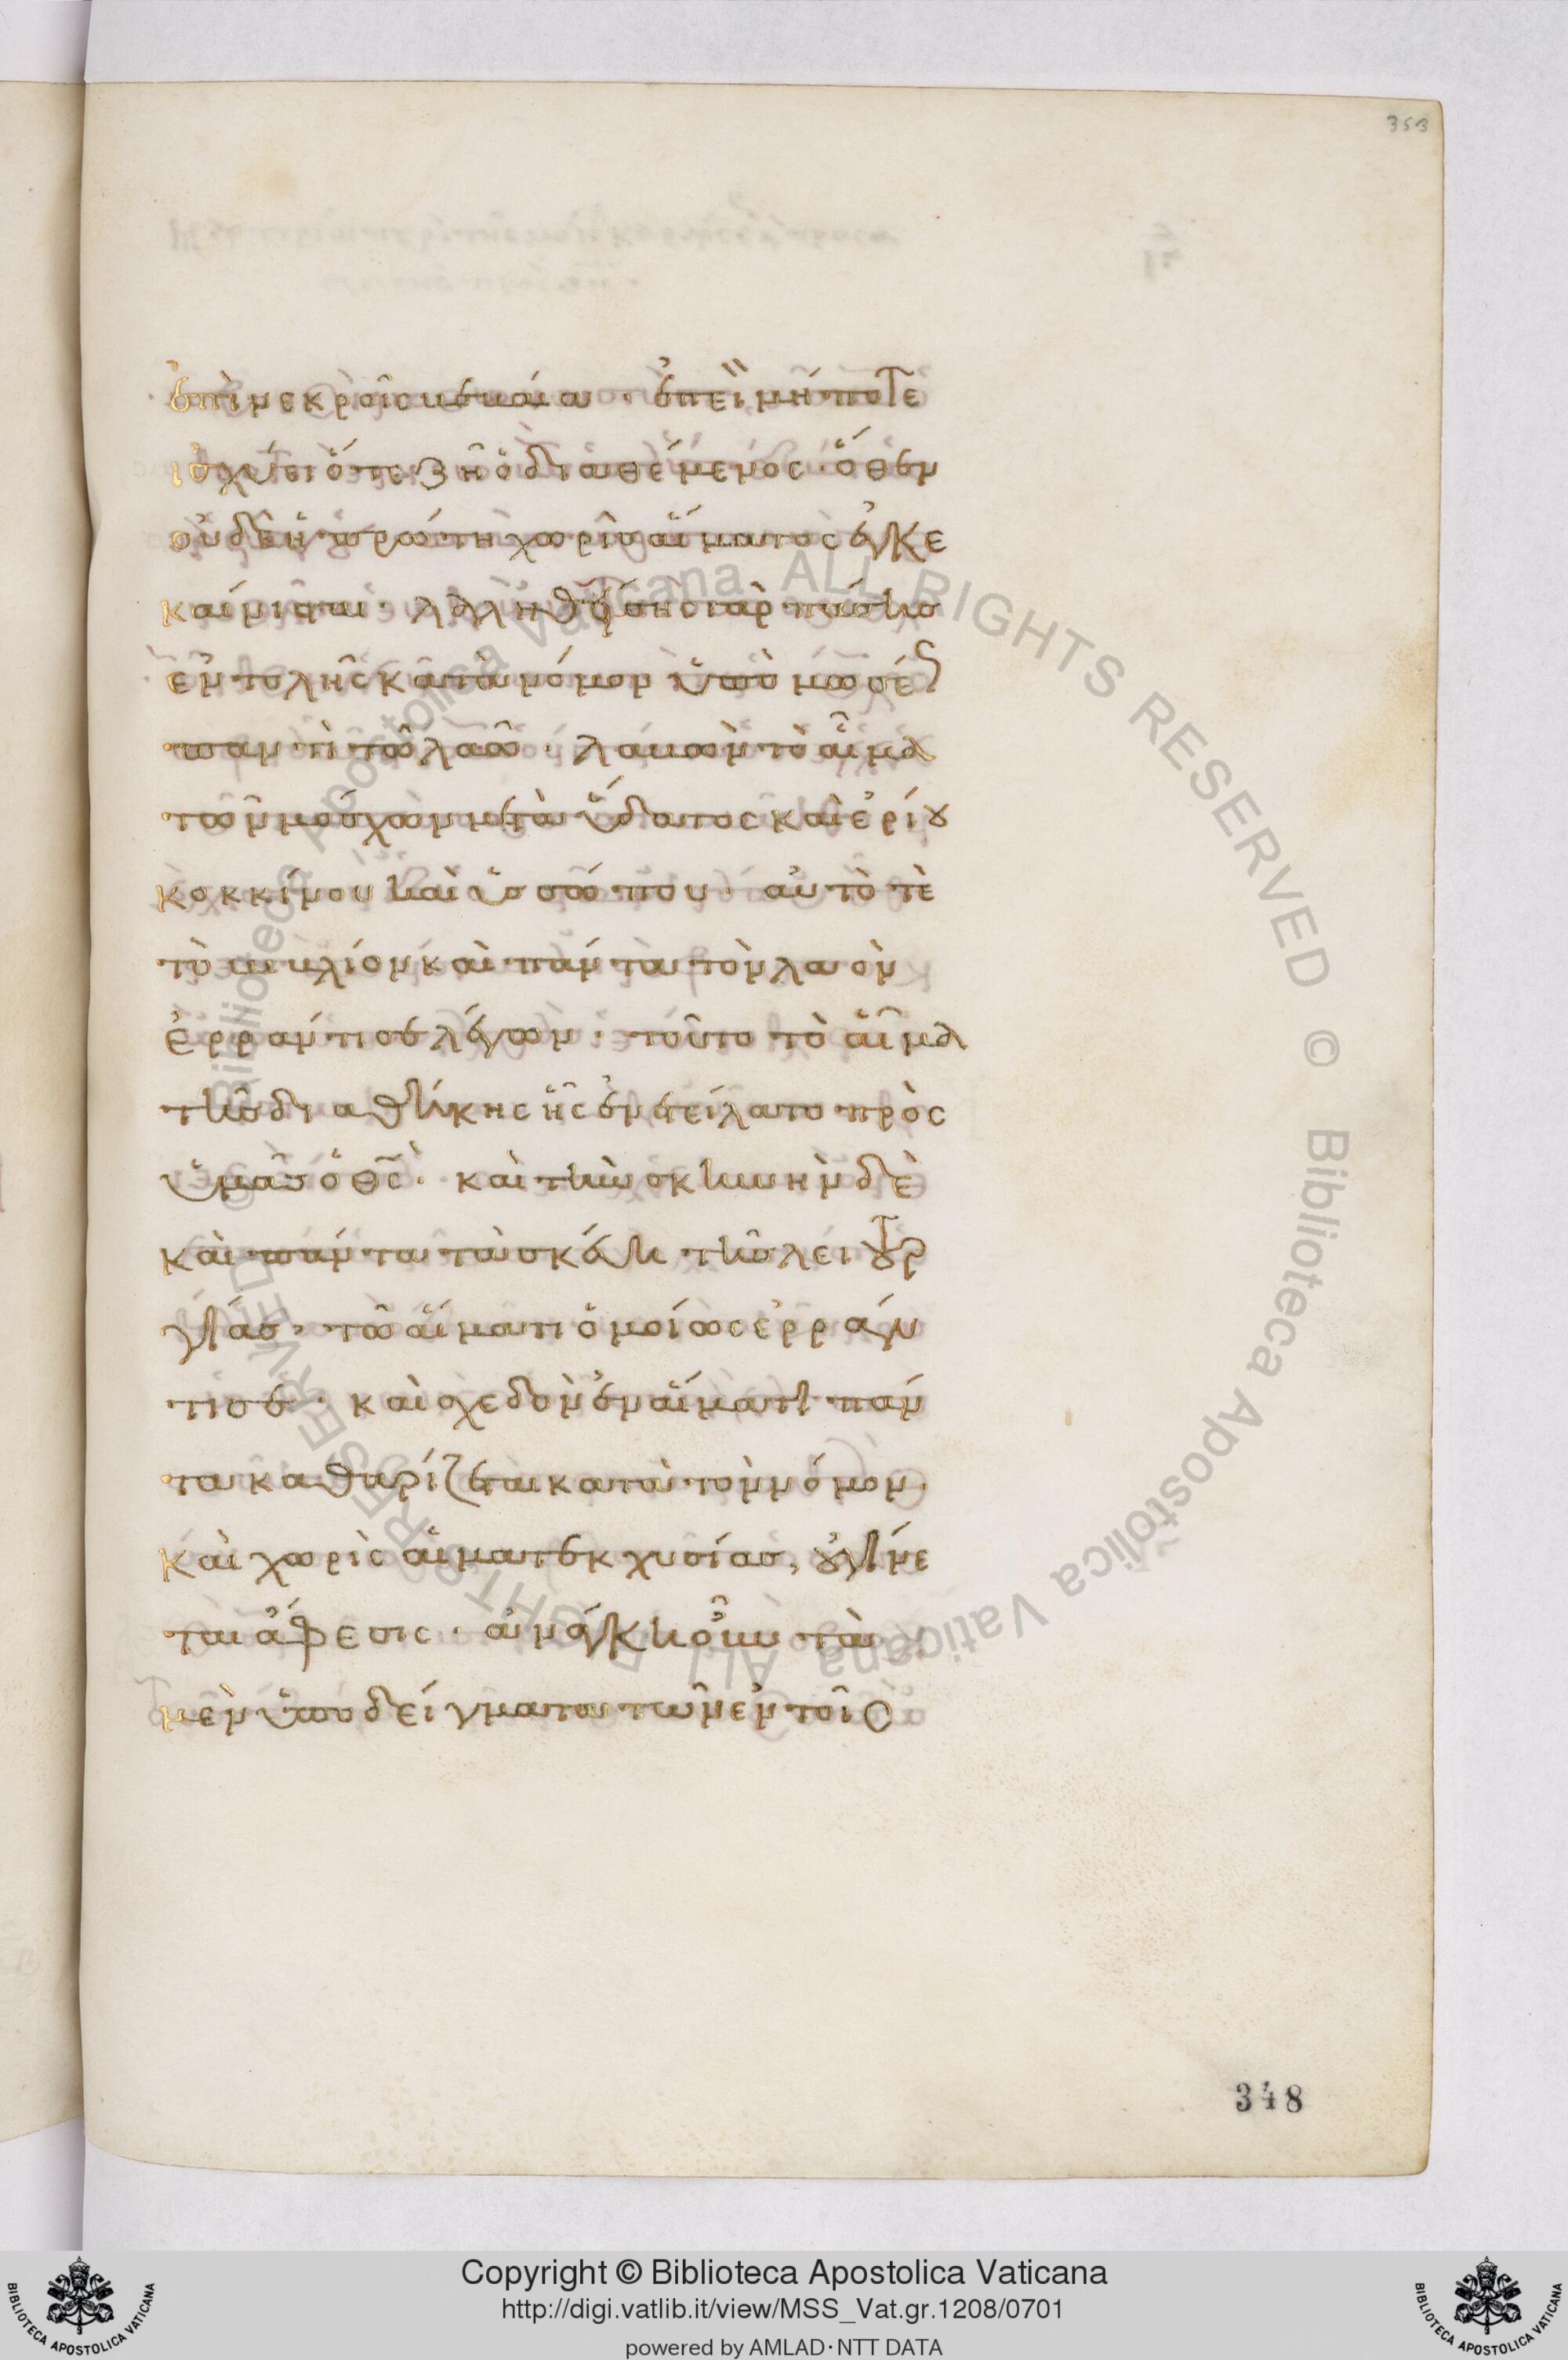 353
ἐπὶ νεκροῖς βεβαία · ἐπεὶ μήποτε
ἰσχύει ὅτε ζῆ ὁ διαθέμενος · ὅθεν
οὐδ ἡ πρώτη χωρὶς αἵματος ἐγκε
καίνισται · λαληθείσης γὰρ πάσης
ἐντολῆς κατὰ νόμον ὑπὸ μωσέως
παντὶ τῷ λαῷ · λαβὼν τὸ αἷμα
τῶν μόσχων μετὰ ὕδατος καὶ ἐρίου
κοκκίνου καὶ ὑσσώπου · αὐτό τὲ
τὸ βιβλίον καὶ πάντα τὸν λαὸν
ἐρράντισε λέγων · τοῦτο τὸ αἷμα
τῆς διαθήκης ἧς ἐνετείλατο πρὸς
ὑμᾶς ὁ θς · καὶ τὴν σκηνὴν δὲ
καὶ πάντα τὰ σκεύη τῆς λειτουρ
γίας · τῷ αἵματι ὁμοίως ἐρράν
τισε · καὶ σχεδὸν ἐν αἵματι πάν
τα καθαρίζεται κατὰ τὸν νόμον ·
καὶ χωρὶς αἱματεκχυσίας, οὐ γίνε
ται ἄφεσις · ἀνάγκη οὖν τὰ
μὲν ὑποδείγματα τῶν ἐν τοῖς
348
© Biblioteca Apostolica Vaticana ALL RIGHTS RESERVED © Biblioteca Apostolica Vaticana ALL RIGHTS RESERVED
Copyright © Biblioteca Apostolica Vaticana
http://digi.vatlib.it/view/MSS_Vat.gr.1208/0701
powered by AMLAD·NTT DATA
BIBLIOTECA APOSTOLICA VATICANA
BIBLIOTECA APOSTOLICA VATICANA